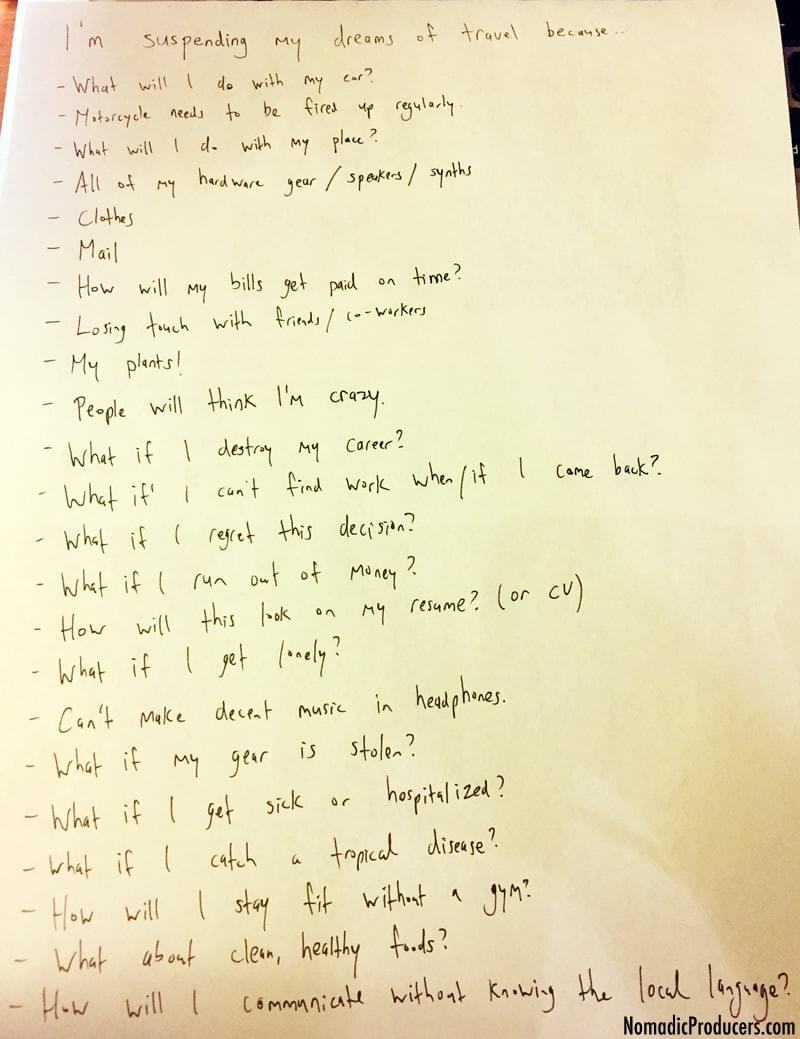 I'm suspending my dreams of travel because...
- What will I do with my car?
- Motorcycle needs to be fired up regularly.
- What will I do with my place?
- All of my hardware gear / speakers / synths
- Clothes
- Mail
- How will my bills get paid on time?
- Losing touch with friends / co-workers
- My plants!
- People will think I'm crazy.
- What if I destroy my career?
- What if I can't find work when/if I come back?
- What if I regret this decision?
- What if I run out of money?
- How will this look on my resume? (or CV)
- What if I get lonely?
- Can't make decent music in headphones.
- What if my gear is stolen?
- What if I get sick or hospitalized?
- What if I catch a tropical disease?
- How will I stay fit without a gym?
- What about clean, healthy foods?
- How will I communicate without knowing the local language?
NomadicProducers.com